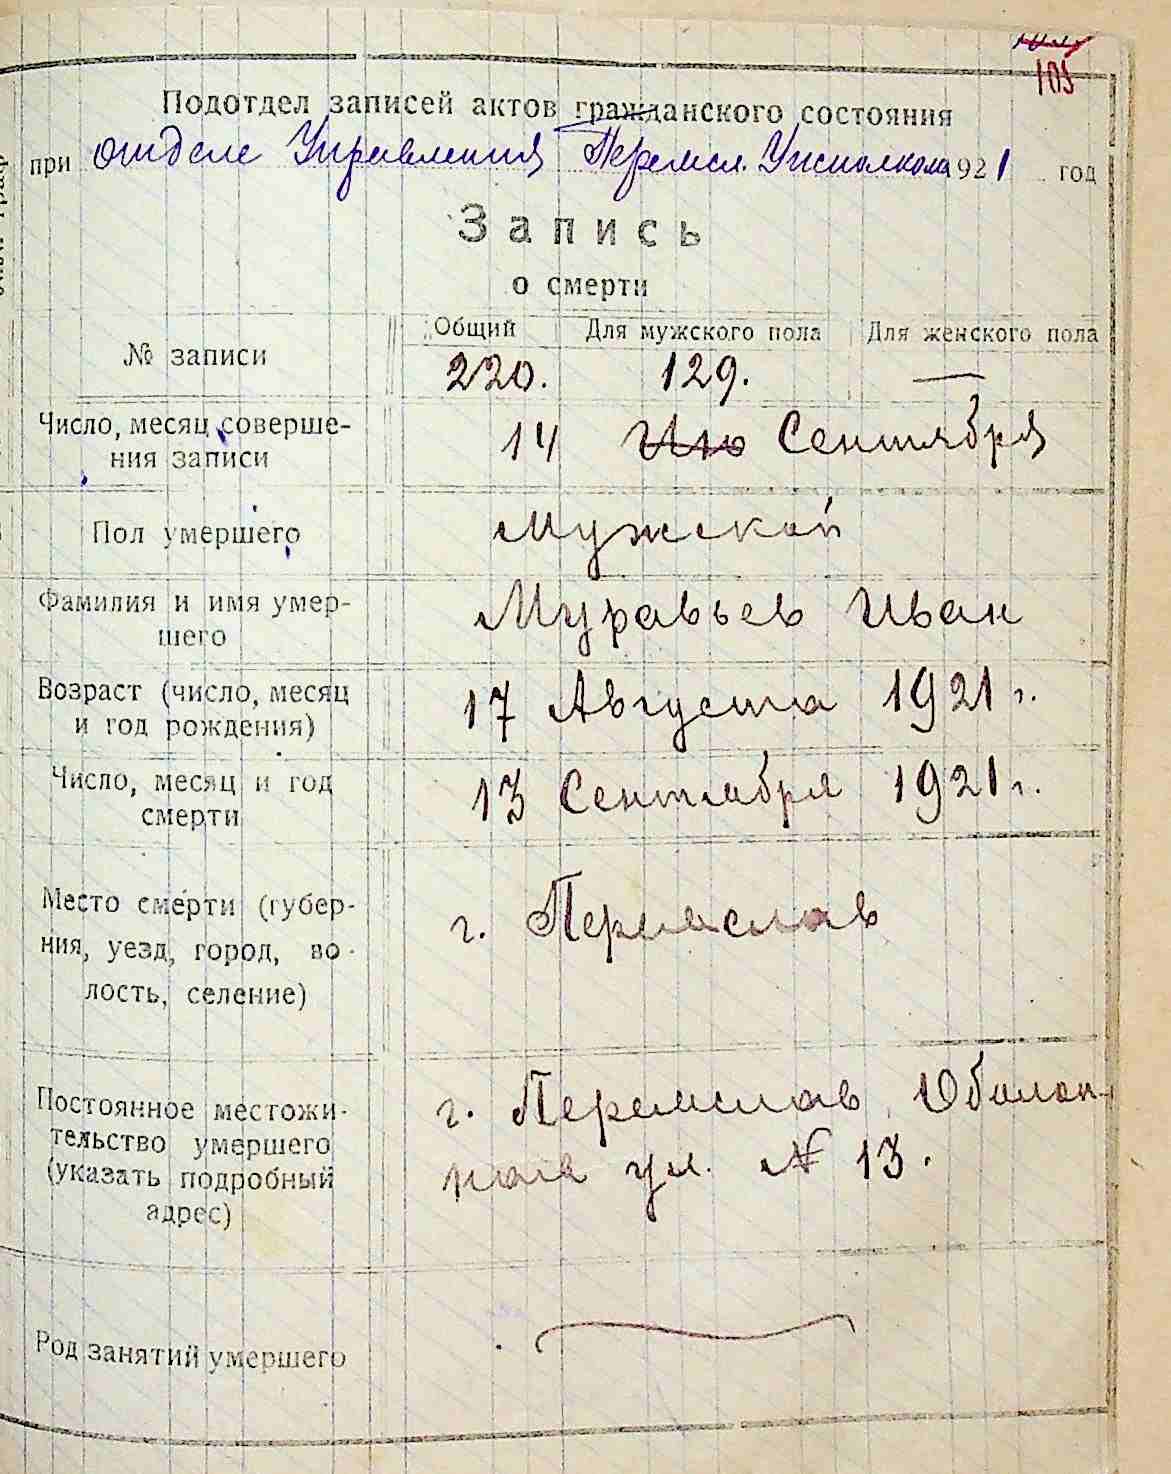 105
Подотдел записей актов гражданского состояния
при отделе Управления Перемсл. Уисполкома 1921 год
Запись
о смерти
№ записи
Общий Для мужского пола Для женского пола
220. 129. —
Число, месяц соверше-
ния записи
14 Ию Сентября
Пол умершего
Мужской
Фамилия и имя умер-
шего
Муравьев Иван
Возраст (число, месяц
и год рождения)
17 Августа 1921 г.
Число, месяц и год
смерти
13 Сентября 1921 г.
Место смерти (губер-
ния, уезд, город, во-
лость, селение)
г.Перемслав
Постоянное местожи-
тельство умершего
(указать подробный
адрес)
г. Перемслав Оболон-
ная ул. № 13.
Род занятий умершего